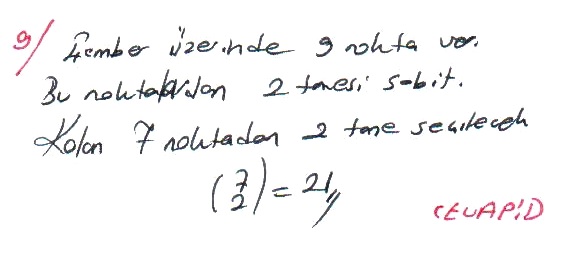 9/ Çember üzerinde 9 nokta var.
Bu noktalardan 2 tanesi sabit.
Kalan 7 noktadan 2 tane seçilecek
(7 2) = 21//
CEVAP: D